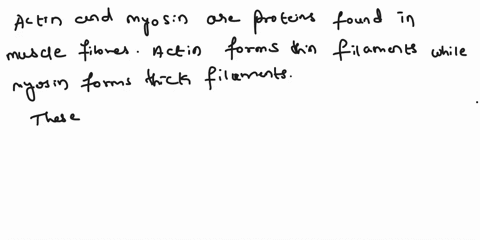 Actin and myosin are proteins found in
muscle fibres. Actin forms thin filaments while
myosin forms thick filaments.
These